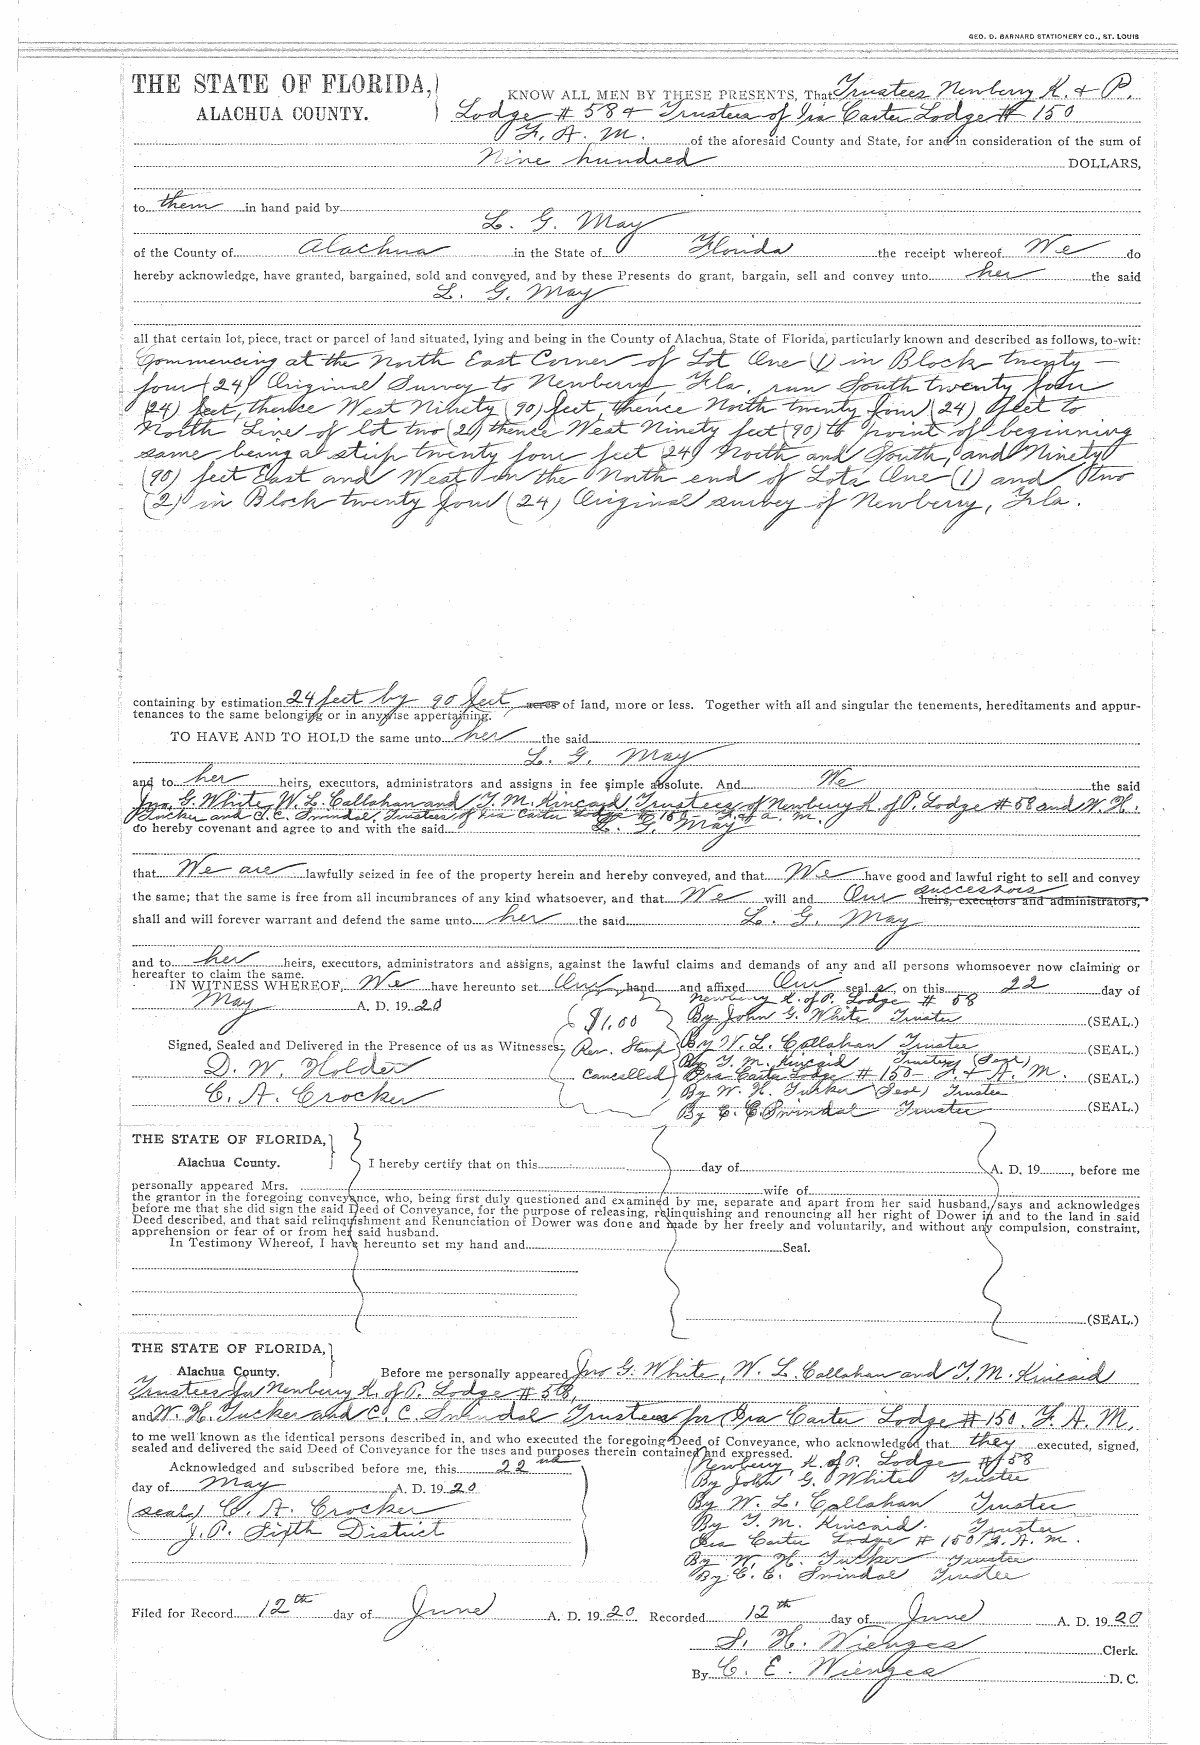 GEO. D. BARNARD STATIONERY CO., ST. LOUIS
THE STATE OF FLORIDA, KNOW ALL MEN BY THESE PRESENTS, That Trustees Newberry K. & P.
ALACHUA COUNTY. Lodge # 58 & Trustees of Ira Carter Lodge # 150
F. A. M. of the aforesaid County and State, for and in consideration of the sum of
Nine hundred DOLLARS,
to them in hand paid by
L. G. May
of the County of Alachua in the State of Florida the receipt whereof We do
hereby acknowledge, have granted, bargained, sold and conveyed, and by these Presents do grant, bargain, sell and convey unto her the said
L. G. May
all that certain lot, piece, tract or parcel of land situated, lying and being in the County of Alachua, State of Florida, particularly known and described as follows, to-wit:
Commencing at the North East Corner of Lot One (1) in Block twenty
four (24) Original Survey to Newberry, Fla. run South twenty four
(24) feet, thence West Ninety (90) feet, thence North twenty four (24) feet to
North Line of lot two (2) thence West Ninety feet (90) to point of beginning
same being a strip twenty four feet (24) North and South, and Ninety
(90) feet East and West on the North end of Lots One (1) and two
(2) in Block twenty four (24) Original survey of Newberry, Fla.
containing by estimation 24 feet by 90 feet, acres of land, more or less. Together with all and singular the tenements, hereditaments and appur-
tenances to the same belonging or in anywise appertaining.
TO HAVE AND TO HOLD the same unto her the said
L. G. May
and to her heirs, executors, administrators and assigns in fee simple absolute. And We the said
Jno. G. White, W. L. Callahan and T. M. Kincaid, Trustees of Newberry K. of P. Lodge # 58 and W. H.
Tucker and C. C. Swindal, Trustees of Ira Carter Lodge # 150 F. & A. M.
do hereby covenant and agree to and with the said L. G. May
that We are lawfully seized in fee of the property herein and hereby conveyed, and that We have good and lawful right to sell and convey
successors
the same; that the same is free from all incumbrances of any kind whatsoever, and that We will and Our heirs, executors and administrators,
shall and will forever warrant and defend the same unto her the said L. G. May
and to her heirs, executors, administrators and assigns, against the lawful claims and demands of any and all persons whomsoever now claiming or
hereafter to claim the same.
IN WITNESS WHEREOF, We have hereunto set Our hand and affixed Our seal s, on this 22 day of
May A. D. 19 20 Newberry K. of P. Lodge # 58
$1.00 By John G. White Trustee (SEAL.)
Signed, Sealed and Delivered in the Presence of us as Witnesses: Rev. Stamp By W. L. Callahan Trustee (SEAL.)
By T. M. Kincaid Trustee (Seal)
D. W. Holder Cancelled Ira Carter Lodge # 150 - F. & A. M. (SEAL.)
C. A. Crocker By W. H. Tucker (Seal) Trustee
By C. C. Swindal Trustee (SEAL.)
THE STATE OF FLORIDA,
Alachua County. I hereby certify that on this day of A. D. 19 , before me
personally appeared Mrs. wife of
the grantor in the foregoing conveyance, who, being first duly questioned and examined by me, separate and apart from her said husband, says and acknowledges
before me that she did sign the said Deed of Conveyance, for the purpose of releasing, relinquishing and renouncing all her right of Dower in and to the land in said
Deed described, and that said relinquishment and Renunciation of Dower was done and made by her freely and voluntarily, and without any compulsion, constraint,
apprehension or fear of or from her said husband.
In Testimony Whereof, I have hereunto set my hand and Seal.
(SEAL.)
THE STATE OF FLORIDA,
Alachua County. Before me personally appeared Jno G. White, W. L. Callahan and T. M. Kincaid
Trustees for Newberry K. of P. Lodge # 58,
and W. H. Tucker and C. C. Swindal Trustees for Ira Carter Lodge # 150. F. A. M.
to me well known as the identical persons described in, and who executed the foregoing Deed of Conveyance, who acknowledged that they executed, signed,
sealed and delivered the said Deed of Conveyance for the uses and purposes therein contained and expressed.
Acknowledged and subscribed before me, this 22nd Newberry K. of P. Lodge # 58
day of May A. D. 19 20 By John G. White Trustee
(seal) C. A. Crocker By W. L. Callahan Trustee
J. P. Fifth District By T. M. Kincaid. Trustee
Ira Carter Lodge # 150 F. A. M.
By W. H. Tucker Trustee
By C. C. Swindal Trustee
Filed for Record 12th day of June A. D. 19 20 Recorded 12th day of June A. D. 19 20
S. H. Wienges Clerk.
By C. E. Wienges D. C.